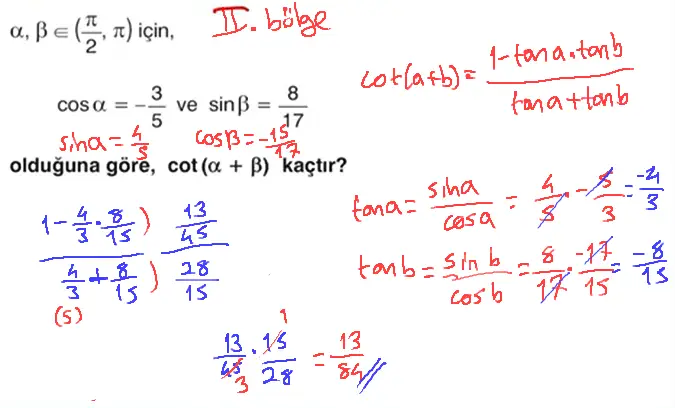 α, β ∈ (π/2, π) için,
II. bölge
cosα = -3/5 ve sinβ = 8/17
sina = 4/5 cosβ = -15/17
olduğuna göre, cot(α + β) kaçtır?
cot(a+b) = 1-tana.tanb / tana+tanb
tana = sina/cosa = 4/5 . -5/3 = -4/3
tanb = sinb/cosb = 8/17 . -17/15 = -8/15
1 - 4/3 . 8/15 ) 13/45
4/3 + 8/15 ) 28/15
(5)
1
13/45 . 15/28 = 13/84
3